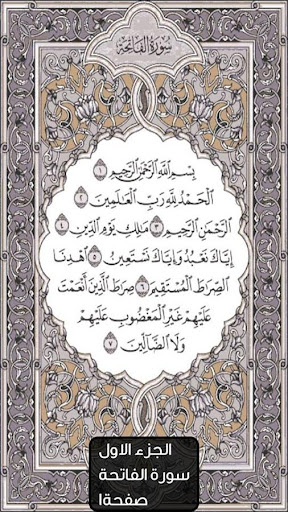 سُورَةُ الفَاتِحَةِ
بِسْمِ اللَّهِ الرَّحْمَٰنِ الرَّحِيمِ ١
الْحَمْدُ لِلَّهِ رَبِّ الْعَالَمِينَ ٢
الرَّحْمَٰنِ الرَّحِيمِ ٣ مَالِكِ يَوْمِ الدِّينِ ٤
إِيَّاكَ نَعْبُدُ وَإِيَّاكَ نَسْتَعِينُ ٥ اهْدِنَا
الصِّرَاطَ الْمُسْتَقِيمَ ٦ صِرَاطَ الَّذِينَ أَنْعَمْتَ
عَلَيْهِمْ غَيْرِ الْمَغْضُوبِ عَلَيْهِمْ
وَلَا الضَّالِّينَ ٧
الجزء الاول
سورة الفاتحة
صفحة١